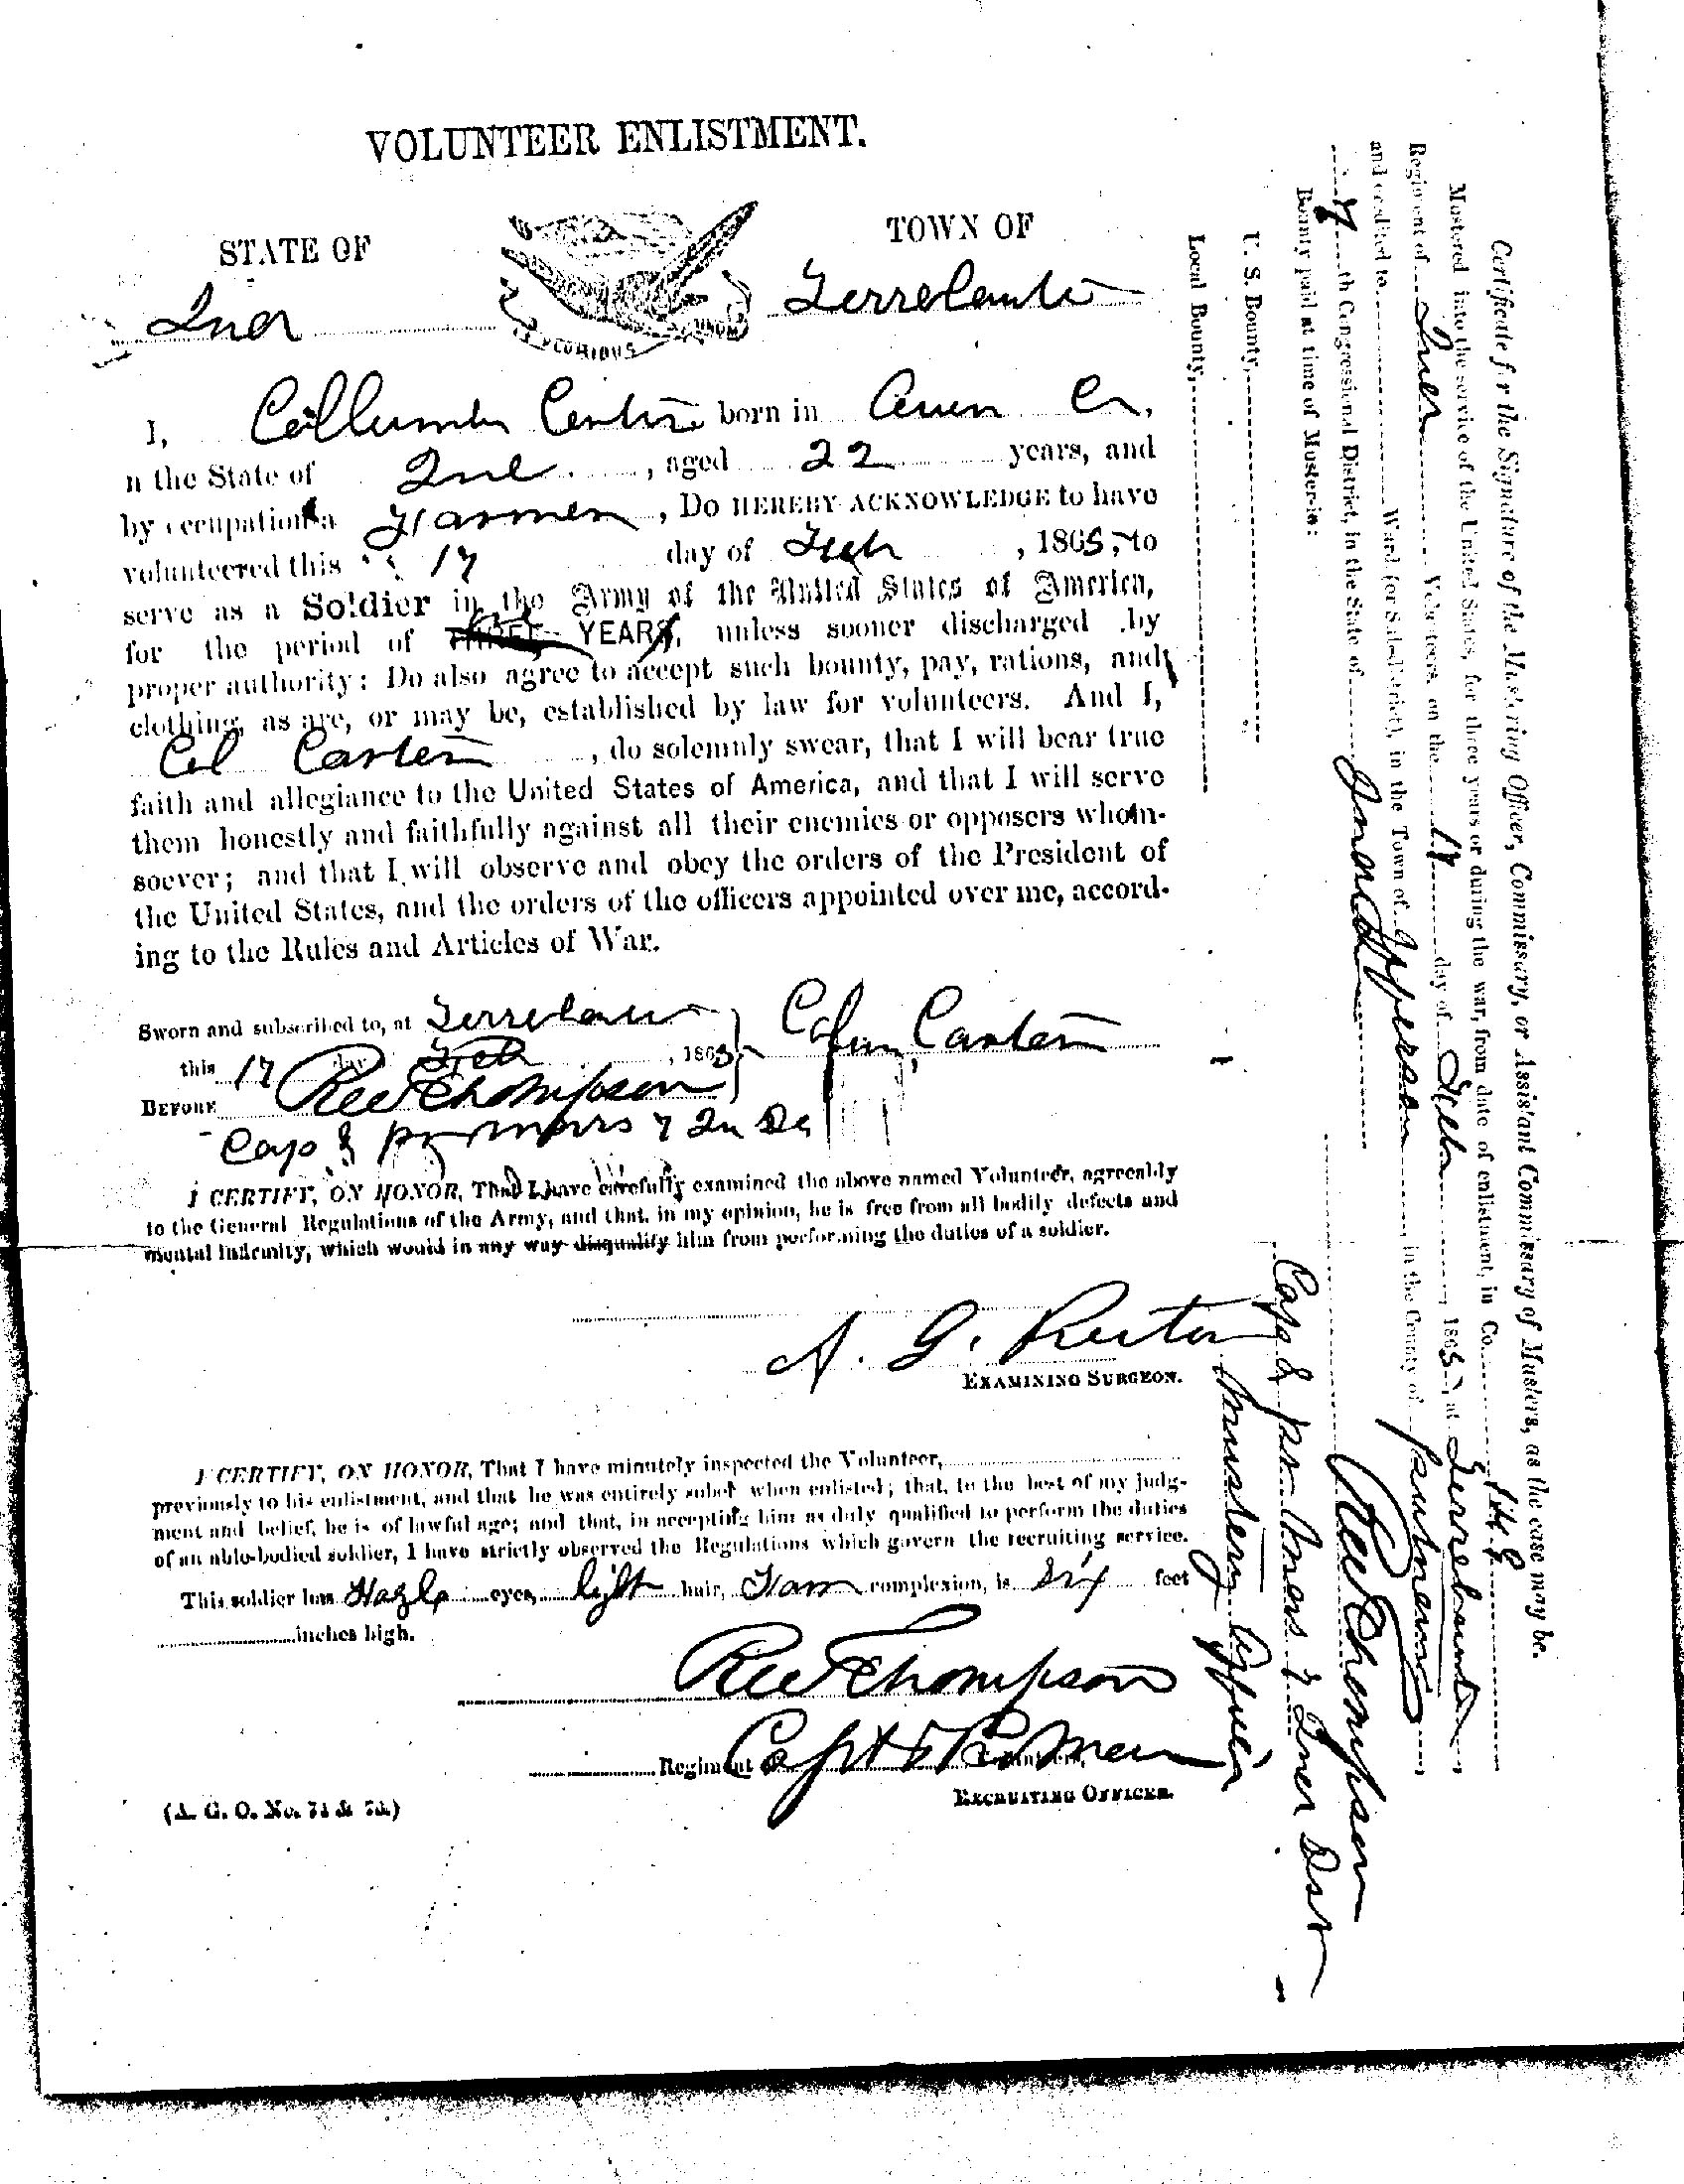 VOLUNTEER ENLISTMENT.
STATE OF
TOWN OF
I, born in
n the State of aged 22 years, and
by occupation a Farmer, Do HEREBY ACKNOWLEDGE to have
volunteered this 17 day of Feb, 1865, to
serve as a Soldier in the Army of the United States of America,
for the period of THREE YEARS, unless sooner discharged by
proper authority: Do also agree to accept such bounty, pay, rations, and
clothing, as are, or may be, established by law for volunteers. And I,
Col Carter, do solemnly swear, that I will bear true
faith and allegiance to the United States of America, and that I will serve
them honestly and faithfully against all their enemies or opposers whom-
soever; and that I will observe and obey the orders of the President of
the United States, and the orders of the officers appointed over me, accord-
ing to the Rules and Articles of War.
Sworn and subscribed to, at
Carter
this 17 day Feb, 1865
BEFORE Thompson
I CERTIFY, ON HONOR, That I have carefully examined the above named Volunteer, agreeably
to the General Regulations of the Army, and that, in my opinion, he is free from all bodily defects and
mental infirmity, which would in any way disqualify him from performing the duties of a soldier.
EXAMINING SURGEON.
I CERTIFY, ON HONOR, That I have minutely inspected the Volunteer,
previously to his enlistment, and that he was entirely sober when enlisted; that, to the best of my judg-
ment and belief, he is of lawful age; and that, in accepting him as duly qualified to perform the duties
of an able-bodied soldier, I have strictly observed the Regulations which govern the recruiting service.
This soldier has Hazle eyes, light hair, complexion, is Six feet
inches high.
Thompson
Regiment
RECRUITING OFFICER.
(A. G. O. No. 74 & 75.)
Certificate for the Signature of the Mustering Officer, Commissary, or Assistant Commissary of Musters, as the case may be.
Mustered into the service of the United States, for three years or during the war, from date of enlistment, in Co.
Regiment of Volunteers, on the 17 day of Feb, 1865, at
and credited to Ward (or Sub-District), in the Town of Jefferson, in the County of Putnam
7th Congressional District, in the State of
Bounty paid at time of Muster-in:
U. S. Bounty,
Local Bounty,
Thompson
Mustering Officer